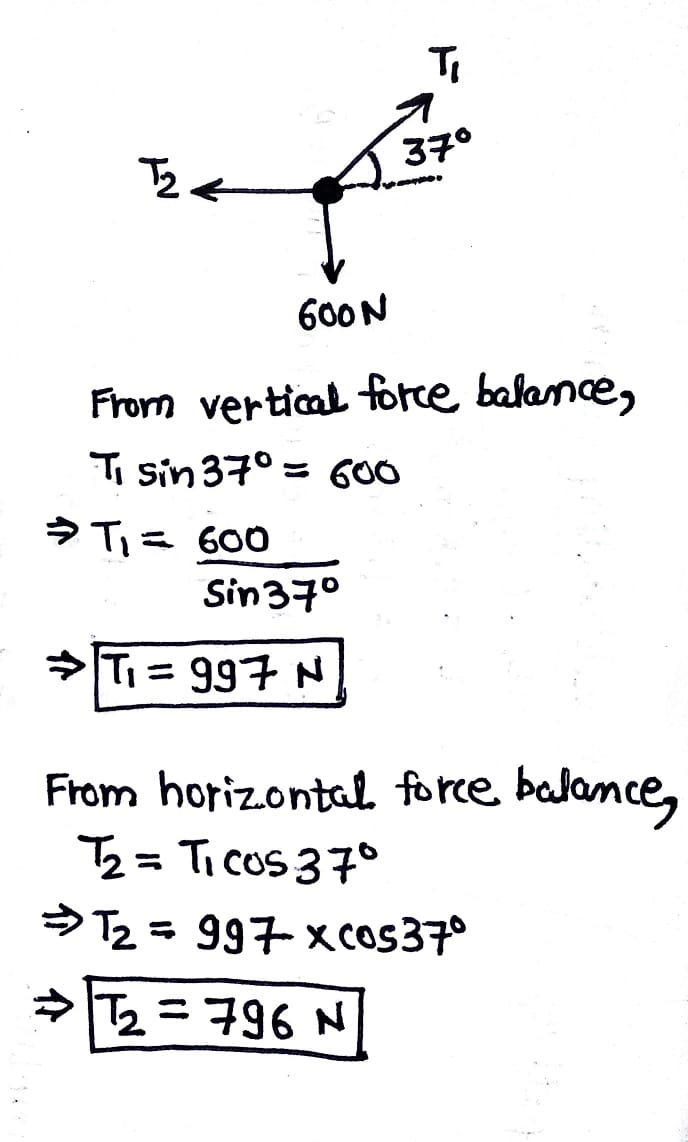 T₁
37°
T₂
600 N
From vertical force balance,
T₁ sin 37° = 600
⇒ T₁ = 600
sin 37°
⇒ T₁ = 997 N
From horizontal force balance,
T₂ = T₁ cos 37°
⇒ T₂ = 997 x cos 37°
⇒ T₂ = 796 N